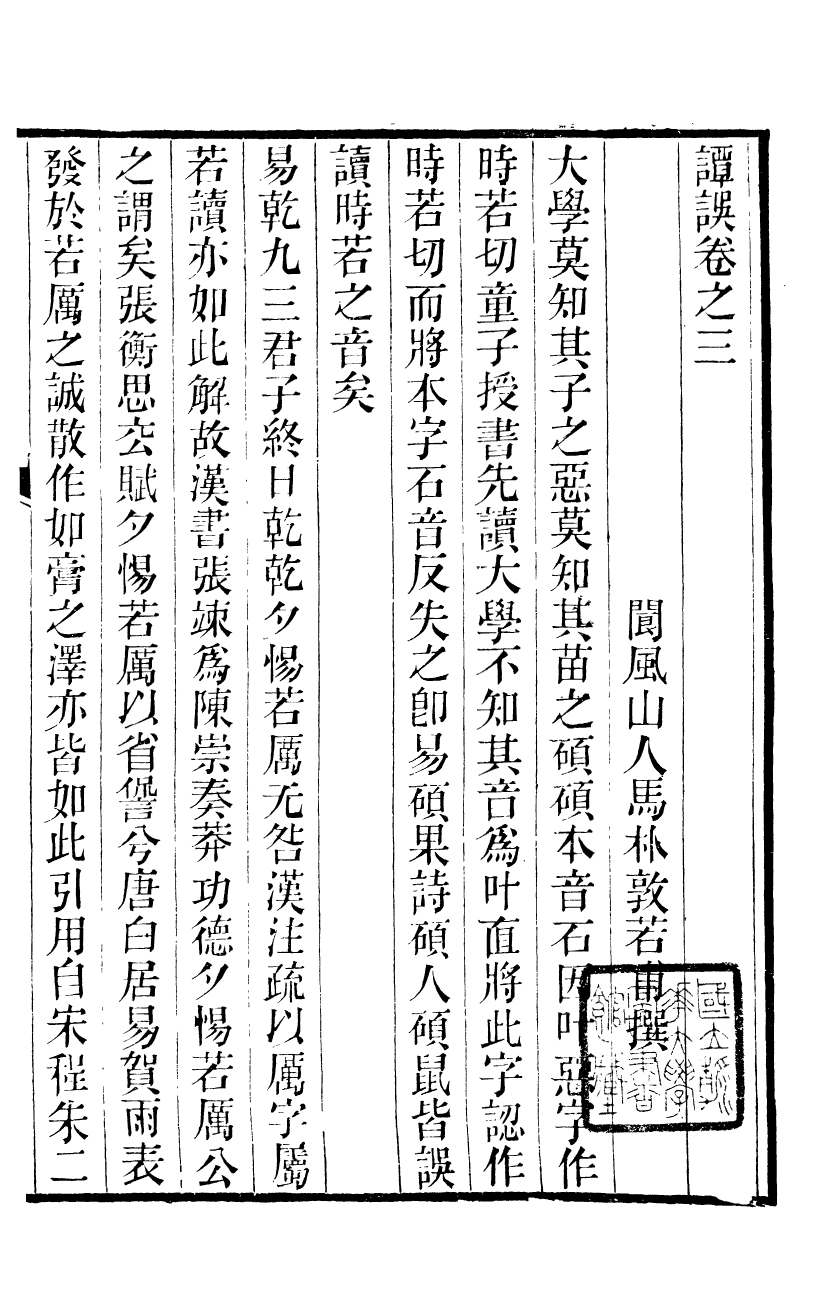 譚誤卷之三
閬風山人馬朴敦若甫撰
大學莫知其子之惡莫知其苗之碩碩本音石因叶惡字作
時若切童子授書先讀大學不知其音爲叶直將此字認作
時若切而將本字石音反失之卽易碩果詩碩人碩鼠皆誤
讀時若之音矣
易乾九三君子終日乾乾夕惕若厲无咎漢注疏以厲字屬
若讀亦如此解故漢書張竦爲陳崇奏莽功德夕惕若厲公
之謂矣張衡思玄賦夕惕若厲以省諐兮唐白居易賀雨表
發於若厲之誠散作如膏之澤亦皆如此引用自宋程朱二